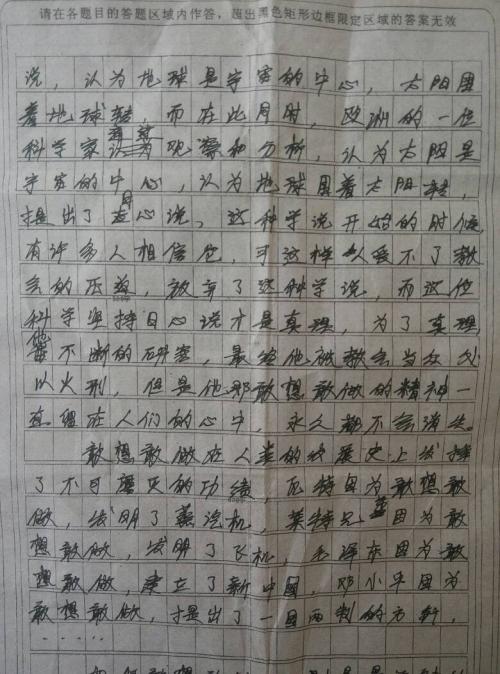 请在各题目的答题区域内作答，超出黑色矩形边框限定区域的答案无效
说，认为地球是宇宙的中心，太阳围
着地球转，而在此月时，欧洲的一位
科学家着兹观察和分析，认为太阳是
宇宙的中心，认为地球围着太阳转，
提出了日心说，这种学说开始的时候，
有许多人相信他，可这样人受不了教
会的压迫，放弃了这种学说，而这位
科学坚持日心说才是真理，为了真理，
他不断的研究，最终他被教会当众处
以火刑，但是他那敢想敢做的精神一
直留在人们的心中，永久都不会消失。
敢想敢做在人类的发展史上发挥
了不可磨灭的功绩，瓦特因为敢想敢
做，发明了蒸汽机，莱特兄弟因为敢
想敢做，发明了飞机，毛泽东因为敢
想敢做，建立了新中国，邓小平因为
敢想敢做，提出了一国两制的方针，
······